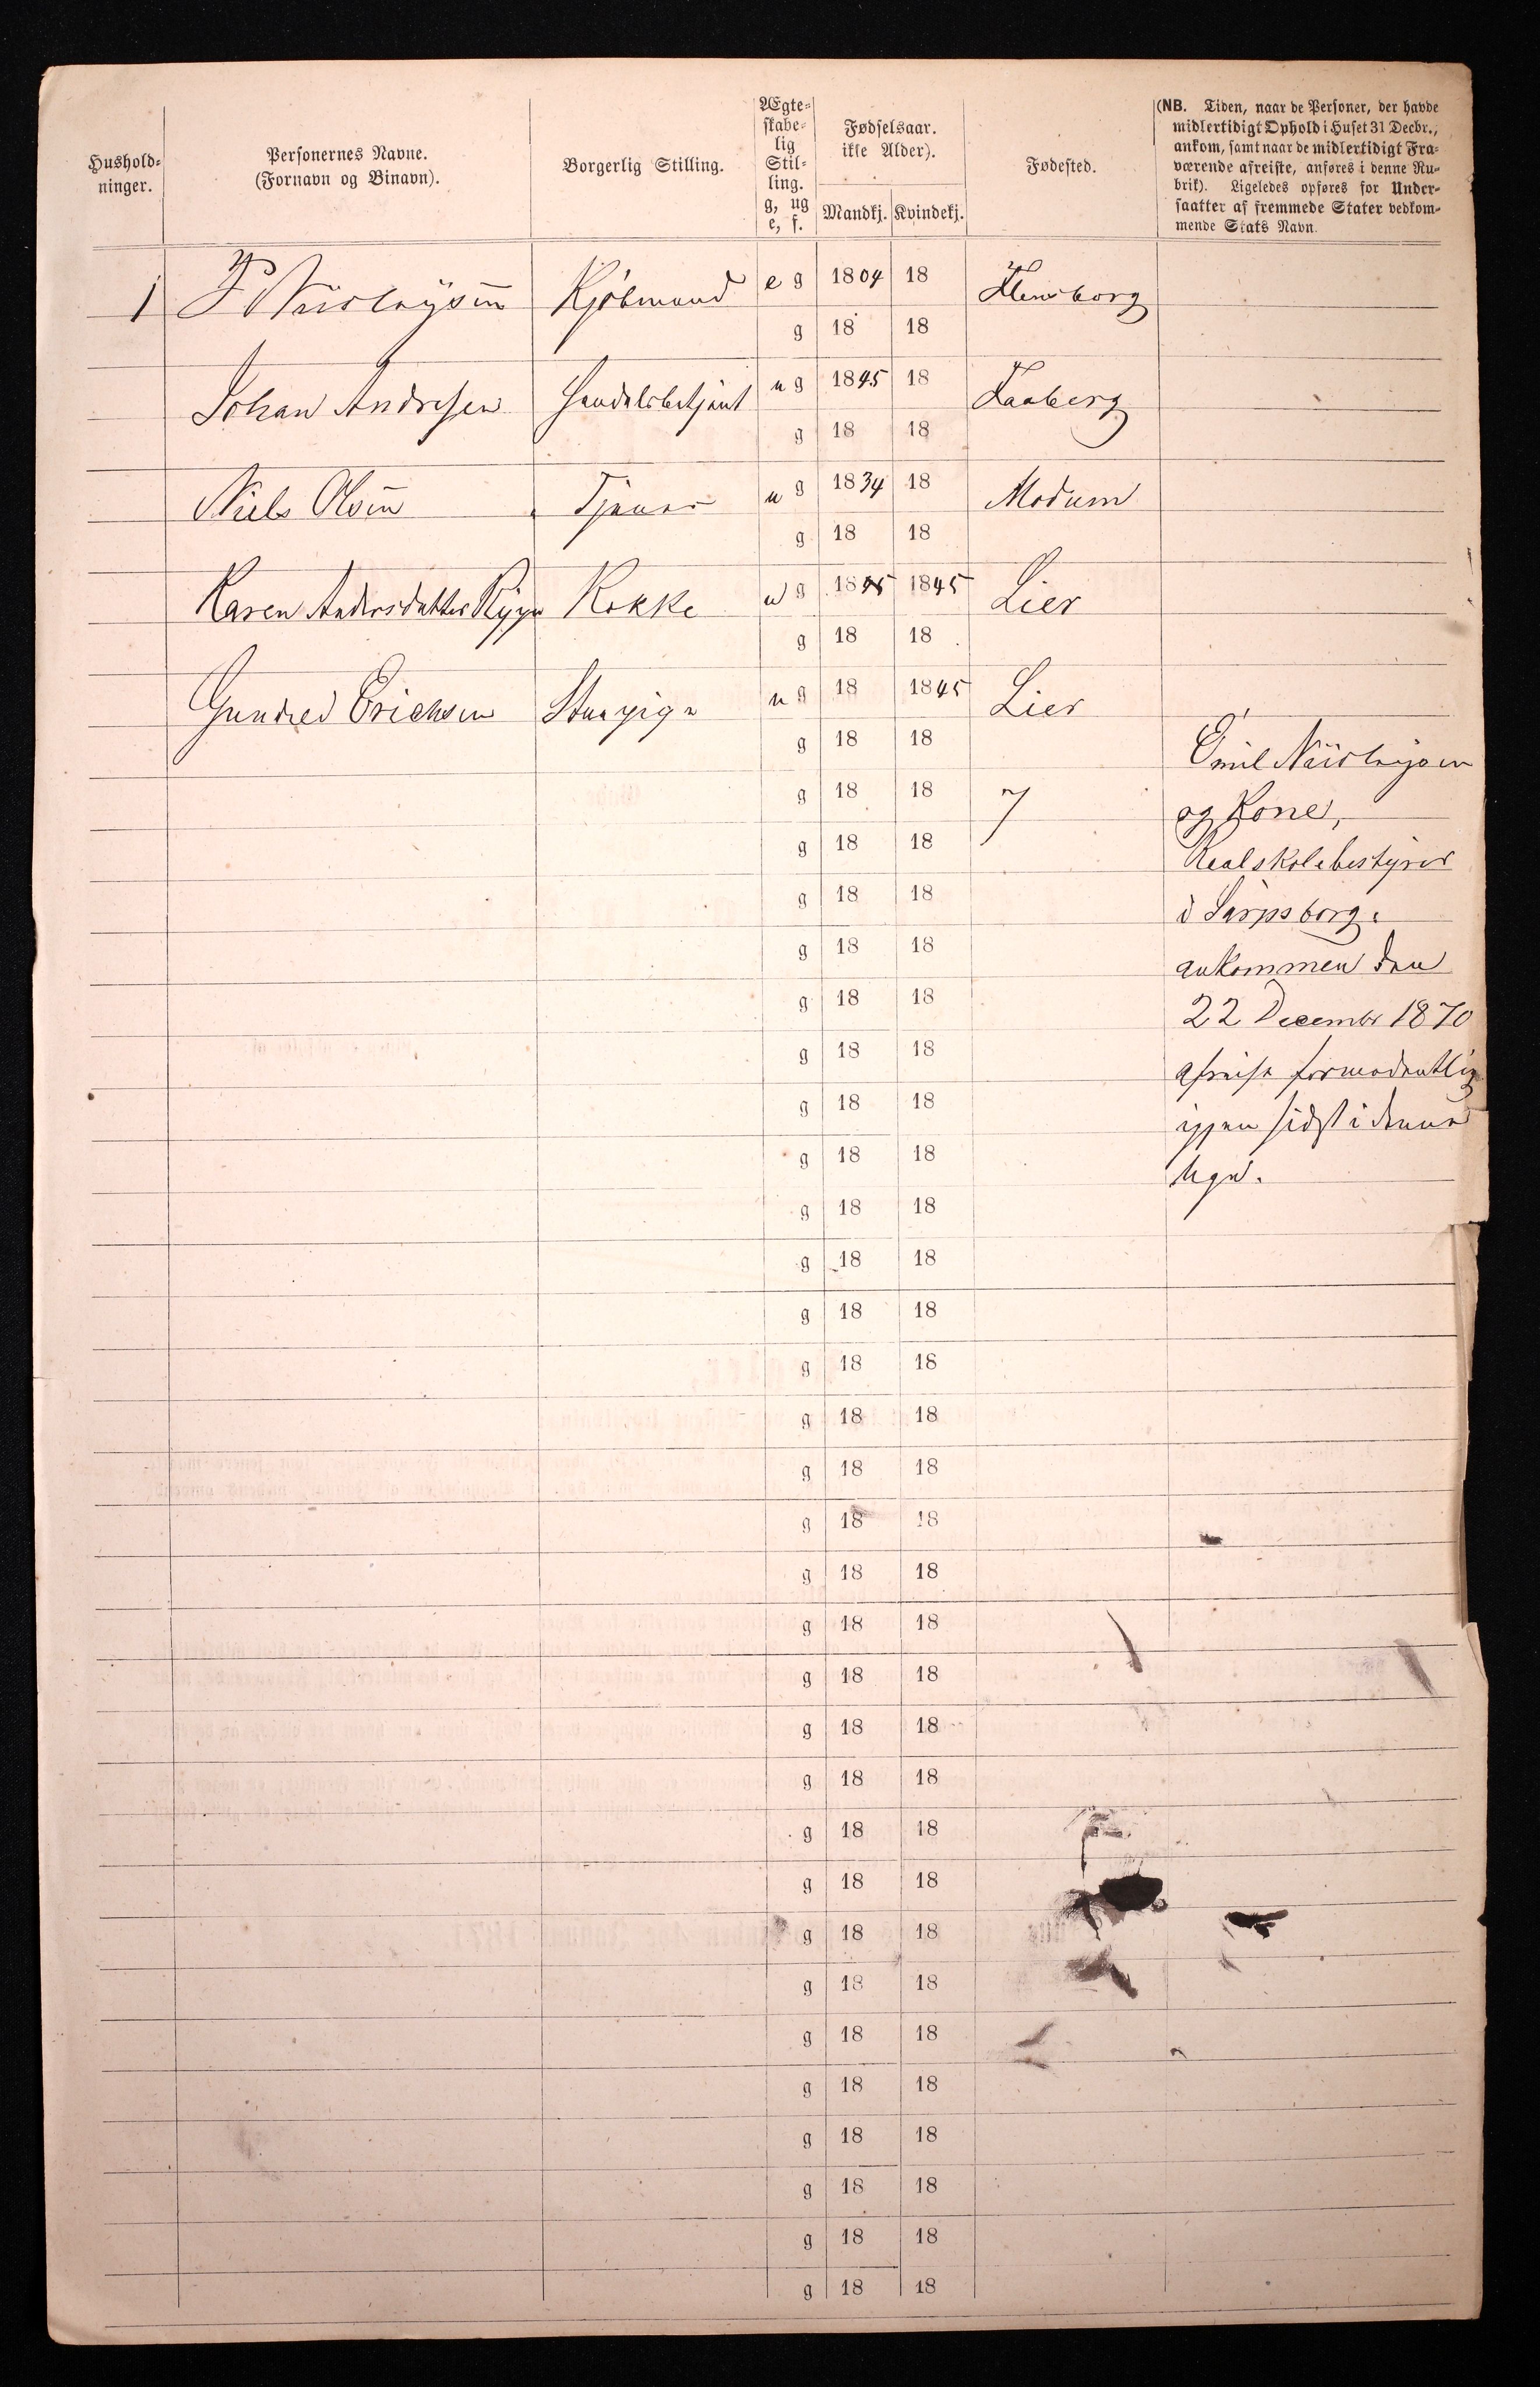 Hushold-
ninger.
Personernes Navne.
(Fornavn og Binavn).
Borgerlig Stilling.
Ægte-
skabe-
lig
Stil-
ling.
g, ug
e, f.
Fødselsaar.
ikke Alder).
Mandkj. Kvindekj.
Fødested.
(NB. Tiden, naar de Personer, der havde
midlertidigt Ophold i Huset 31 Decbr.,
ankom, samt naar de midlertidigt Fra-
værende afreiste, anføres i denne Ru-
brik). Ligeledes opføres for Under-
saatter af fremmede Stater vedkom-
mende Stats Navn.
1 Kjøbmand e g 1804 18 Flensborg
g 18 18
Johan Andresen Handelsbetjent u g 1845 18 Faaberg
g 18 18
Niels Olsen Tjener u g 1834 18 Modum
g 18 18
Karen Andersdatter Kokke u g 1845 1845 Lier
g 18 18
Erichsen Stuepige u g 18 1845 Lier
g 18 18
Emil
g 18 18
og Kone,
g 18 18
Realskolebestyrer
g 18 18
i Sarpsborg.
g 18 18
ankommen den
g 18 18
22 Decembr 1870
g 18 18
afreise formodentlig
g 18 18
igjen sidst i denne
g 18 18
Uge.
g 18 18
g 18 18
g 18 18
g 18 18
g 18 18
g 18 18
g 18 18
g 18 18
g 18 18
g 18 18
g 18 18
g 18 18
g 18 18
g 18 18
g 18 18
g 18 18
g 18 18
g 18 18
g 18 18
g 18 18
g 18 18
g 18 18